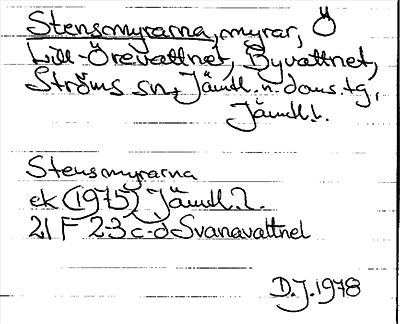 Stensmyrarna, myrar, Ö
Lill-Örevattnet, Byvattnet,
Ströms sn, Jämtl. n. doms. tg,
Jämtl. l.
Stensmyrarna
ek (1975) Jämtl. l.
21 F 2-3 c-d Svanavattnet
D.J. 1978